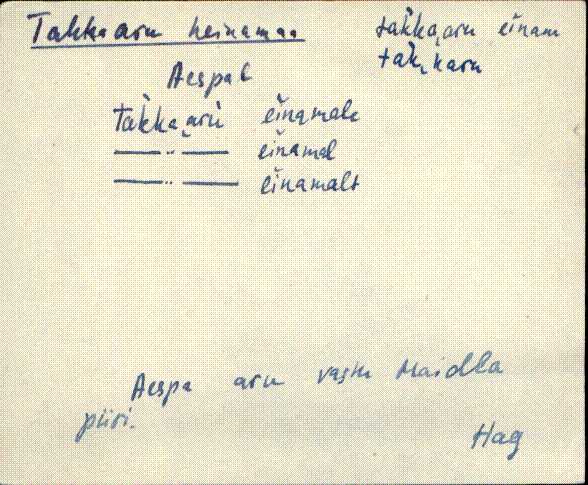 Takkaaru heinamaa
takka,aru einam
tak,karu
Aespal
Takka,aru einamale
—"— einamal
—"— einamalt
Aespa aru vastu Maidla
piiri.
Hag